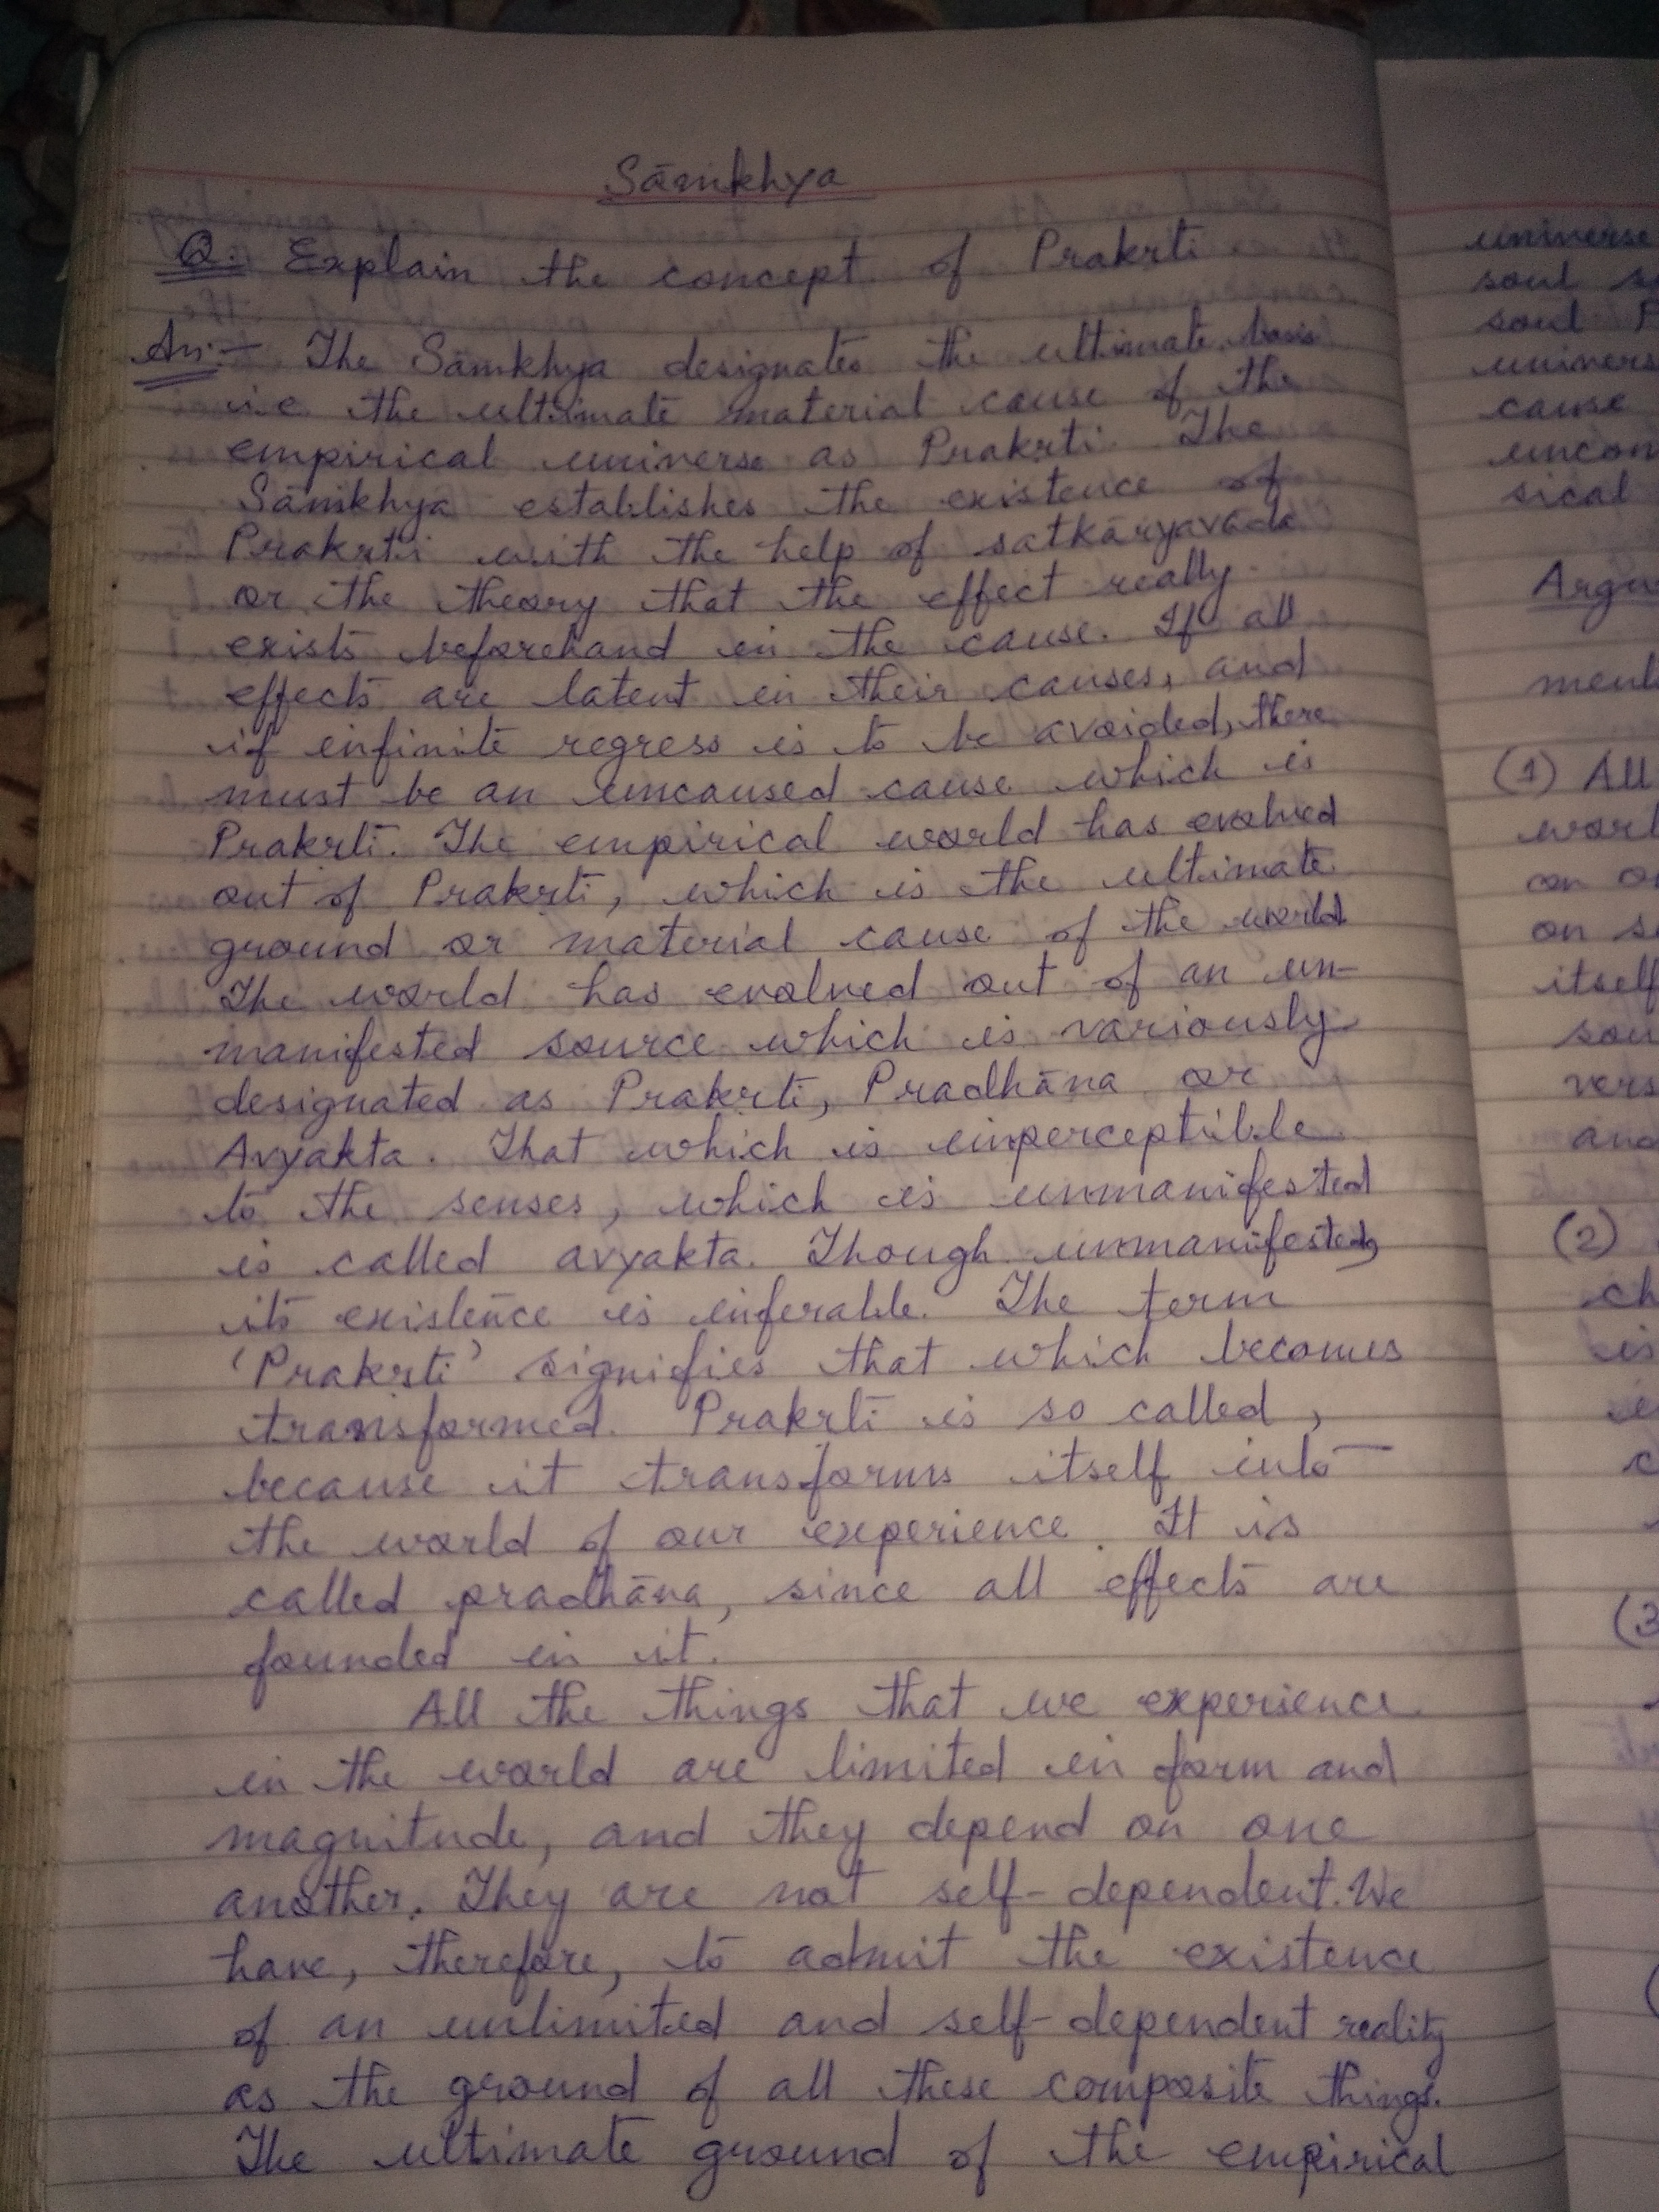 Sāmkhya
Q. Explain the concept of Prakrti
An:- The Sāmkhya designates the ultimate basis
i.e the ultimate material cause of the
empirical universe as Prakrti. The
Sāmkhya establishes the existence of
Prakrti with the help of satkāryavāda
or the theory that the effect really
exists beforehand in the cause. If all
effects are latent in their causes, and
if infinite regress is to be avoided, there
must be an uncaused cause which is
Prakrti. The empirical world has evolved
out of Prakrti, which is the ultimate
ground or material cause of the world
The world has evolved out of an un-
manifested source which is variously
designated as Prakrti, Pradhāna or
Avyakta. That which is imperceptible
to the senses, which is unmanifested
is called avyakta. Though unmanifested,
its existence is inferable. The term
'Prakrti' signifies that which becomes
transformed. Prakrti is so called,
because it transforms itself into
the world of our experience. It is
called pradhāna, since all effects are
founded in it.
All the things that we experience
in the world are limited in form and
magnitude, and they depend on one
another. They are not self-dependent. We
have, therefore, to admit the existence
of an unlimited and self-dependent reality
as the ground of all these composite things.
The ultimate ground of the empirical
universe
soul
soul
univers
cause
uncon
sical
Argu
ment
(1) All
worl
on
on
itself
sou
vers
and
(2)
ch
is
(3